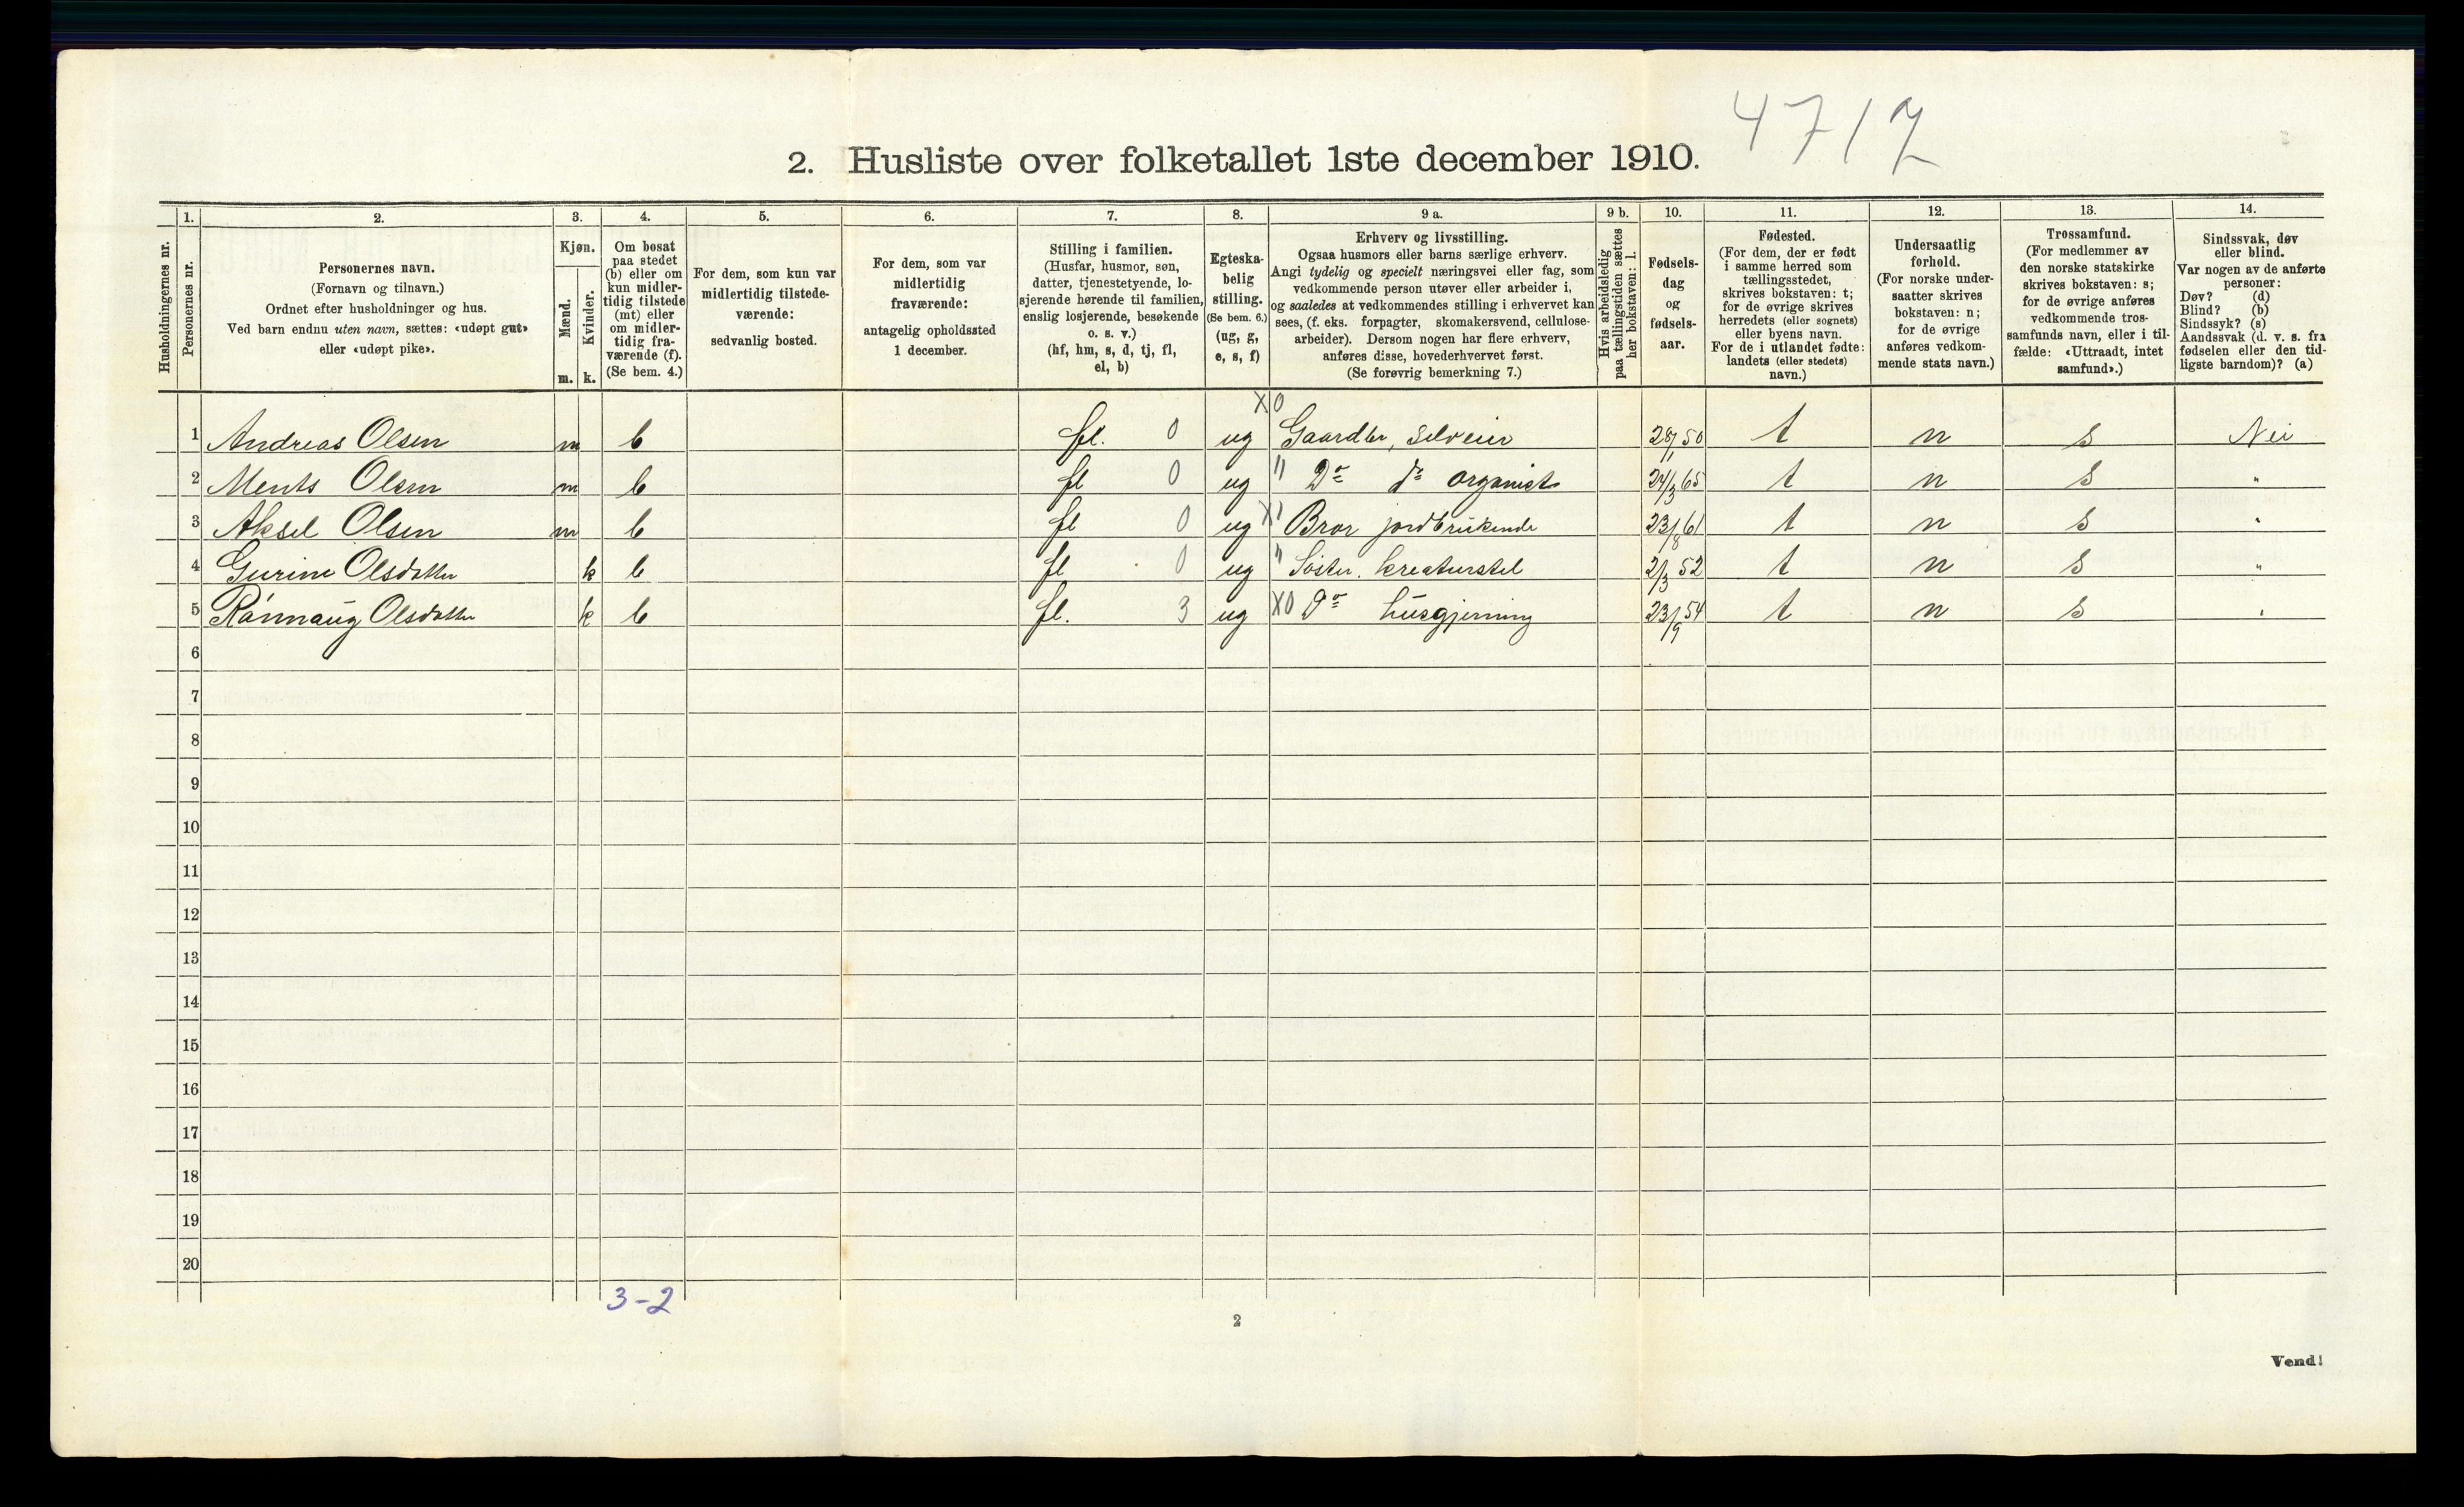 4717
2. Husliste over folketallet 1ste december 1910.
Husholdningernes nr.
1.
Personernes nr.
2.
Personernes navn.
(Fornavn og tilnavn.)
Ordnet efter husholdninger og hus.
Ved barn endnu uten navn, sættes: «udøpt gut»
eller «udøpt pike».
3.
Kjøn.
Mænd.
m.
Kvinder.
k.
4.
Om bosat
paa stedet
(b) eller om
kun midler-
tidig tilstede
(mt) eller
om midler-
tidig fra-
værende (f).
(Se bem. 4.)
5.
For dem, som kun var
midlertidig tilstede-
værende:
sedvanlig bosted.
6.
For dem, som var
midlertidig
fraværende:
antagelig opholdssted
1 december.
7.
Stilling i familien.
(Husfar, husmor, søn,
datter, tjenestetyende, lo-
sjerende hørende til familien,
enslig losjerende, besøkende
o. s. v.)
(hf, hm, s, d, tj, fl,
el, b)
8.
Egteska-
belig
stilling.
(Se bem. 6.)
(ug, g,
e, s, f)
9 a.
Erhverv og livsstilling.
Ogsaa husmors eller barns særlige erhverv.
Angi tydelig og specielt næringsvei eller fag, som
vedkommende person utøver eller arbeider i,
og saaledes at vedkommendes stilling i erhvervet kan
sees, (f. eks. forpagter, skomakersvend, cellulose-
arbeider). Dersom nogen har flere erhverv,
anføres disse, hovederhvervet først.
(Se forøvrig bemerkning 7.)
9 b.
Hvis arbeidsledig
paa tællingstiden sættes
her bokstaven: l.
10.
Fødsels-
dag
og
fødsels-
aar.
11.
Fødested.
(For dem, der er født
i samme herred som
tællingsstedet,
skrives bokstaven: t;
for de øvrige skrives
herredets (eller sognets)
eller byens navn.
For de i utlandet fødte:
landets (eller stedets)
navn.)
12.
Undersaatlig
forhold.
(For norske under-
saatter skrives
bokstaven: n;
for de øvrige
anføres vedkom-
mende stats navn.)
13.
Trossamfund.
(For medlemmer av
den norske statskirke
skrives bokstaven: s;
for de øvrige anføres
vedkommende tros-
samfunds navn, eller i til-
fælde: «Uttraadt, intet
samfund».)
14.
Sindssvak, døv
eller blind.
Var nogen av de anførte
personer:
Døv? (d)
Blind? (b)
Sindssyk? (s)
Aandssvak (d. v. s. fra
fødselen eller den tid-
ligste barndom)? (a)
1 Andreas Olsen m b fl. 0 ug X0 Gaardbr, selveier 28/1 50 t n s Nei
2 Ments Olsen m b fl 0 ug " Do do organist 24/3 65 t n s "
3 Aksel Olsen m b fl 0 ug X1 Bror jordbrukende 23/8 61 t n s "
4 Gurine Olsdatter k b fl 0 ug " Søster. kreaturstel 2/3 52 t n s "
5 Rönnaug Olsdatter k b fl. 3 ug X0 Do husgjerning 23/9 54 t n s "
6
7
8
9
10
11
12
13
14
15
16
17
18
19
20
3-2
2
Vend!